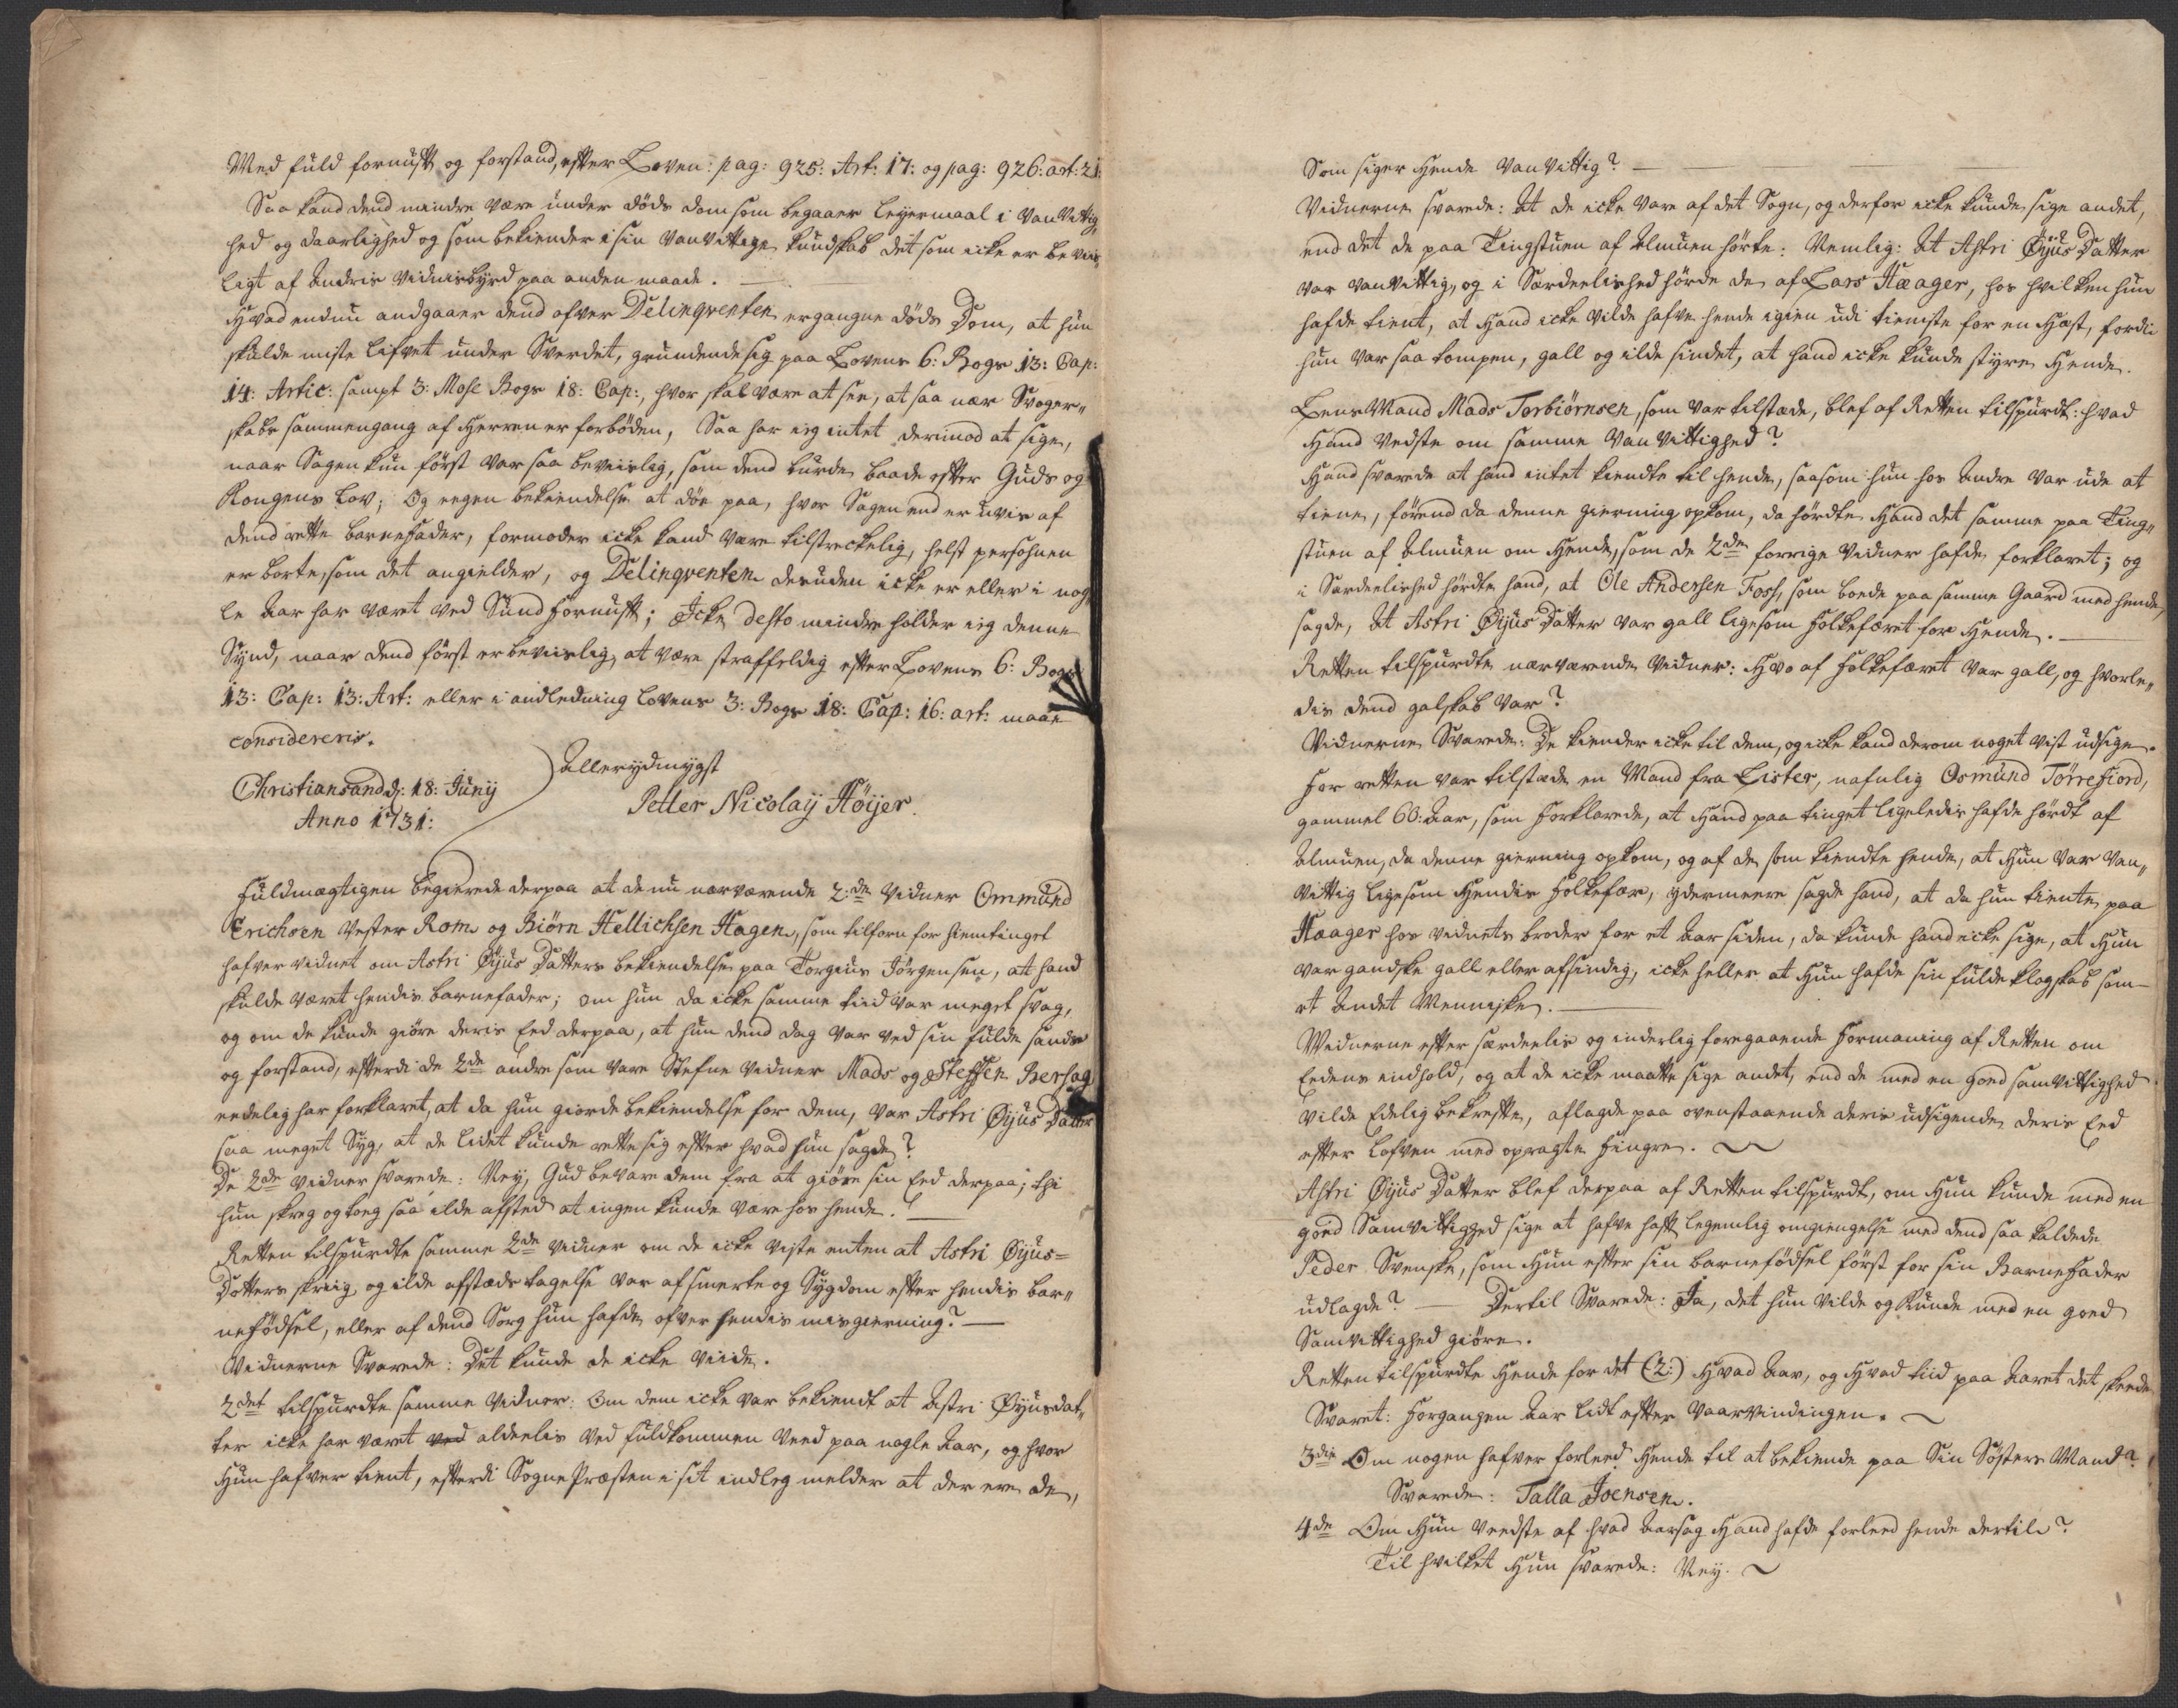 Med fuld fornufft og forstand, efter Loven: pag: 925: Art: 17: og pag: 926: art: 21:
Saa kand dend mindre være under døds dom som begaaer leyermaal i VanVittig„
hed og daarlighed og som bekiender i sin vanvittige kundskab det som icke er beviis„
ligt af Andris vidnisbyrd paa anden maade.
Hvad endnu andgaaer dend ofver Delinqventen ergangne døds Dom, at hun
skulde miste lifvet under Sverdet, grundende sig paa Lovens 6: Bogs 13: Cap:
14: Artic: sampt 3: Mose Bogs 18: Cap:, hvor skal være at see, at saa nær Svoger„
skabs sammengang af Herren er forböden, Saa har ieg intet derimod at sige,
naar Sagen kun först var saa beviislig, som dend burde baade efter Guds og
Kongens lov; Og eegen bekiendelse at döe paa, hvor Sagen end er uvis af
dend rette barnefader, formoder icke kand være tilstreckelig, helst persohnen
er borte, som det angielder, og Delinqventen desuden icke er eller i nog„
le Aar har været ved Sund fornufft; Icke desto mindre holder ieg denne
Synd, naar dend först er beviislig, at være straffeldig efter Lovens 6: Bogs
13: Cap: 13: Art: eller i andledning lovens 3: Bogs 18: Cap: 16: art: maae
considereris.
Christiansand d: 18: Juny
Anno 1731:
Allerydmygst
Petter Nicolaÿ Höijer.
Fuldmægtigen begierede derpaa at de nu nærværende 2de vidner Ommund
Erichsen Vester Rom og Biörn Hellichsen Hagen, som tilforn for hiemtinget
hafver vidnet om Astri Öÿus Datters bekiendelse paa Torgius Jörgensen, at hand
skulde været hendis barnefader; om hun da icke samme tiid var meget svag,
og om de kunde giöre deris Eed derpaa, at hun dend dag var ved sin fulde sands
og forstand, efterdi de 2de andre som vare Stefne vidner Mads og Steffen Bersag
eedelig har forklaret, at da hun giorde bekiendelse for dem, var Astri Öÿus Datter
saa meget Syg, at de lidet kunde rette sig efter hvad hun sagde?
De 2de vidner svarede: Ney, Gud bevare dem fra at giöre sin Eed derpaa; thi
hun skreg og toeg saa ilde afsted at ingen kunde være hos hende.
Retten tilspurdte samme 2de vidner om de icke viste enten at Astri Öÿus=
Dotters skriig og ilde afsteds tagelse var af smerte og Sygdom efter hendis bar„
nefödsel, eller af dend Sorg hun hafde ofver hendis misgierning?
Vidnerne Svarede: Det kunde de icke viide.
2det tilspurdte samme vidner: Om dem icke var bekiendt at Astri Öÿusdat„
ter icke har været ved aldeelis ved fuldkommen Veed paa nogle Aar, og hvor
Hun hafver tient, efterdi SognePræsten i sit indleg melder at der ere de,
Som siger Hende VanVittig?
Vidnerne svarede: At de icke vare af det Sogn, og derfor icke kunde sige andet,
end det de paa Tingstuen af Almuen hörte: Nemlig: At Astri Öÿus Datter
var vanvittig, og i Særdeelished hörde de af Lars Haager, hos hvilken hun
hafde tient, at Hand icke vilde hafve hende igien udi tieniste for en Hæst, fordi
hun var saa tompen, gall og ilde sindet, at hand icke kunde styre Hende.
LensMand Mads Torbiörnsen, som var tilstæde, blef af Retten tilspurdt: hvad
Hand vedste om samme VanVittighed?
Hand svarede at hand intet kiendte til hende, saasom hun hos Andre var ude at
tiene, förend da denne gierning opkom, da hördte Hand det samme paa Ting„
stuen af Almuen om Hende, som de 2de forrige Vidner hafde forklaret; og
i Særdeelished hördte hand, at Ole Andersen Foss, som boede paa samme Gaard med hende,
sagde, At Astri Öÿus Datter var gall ligesom Folkefæret for Hende.
Retten tilspurdte nærværende Vidner: Hvo af Folkefæret var gall, og hvorle„
dis dend galskab var?
Vidnerne Svarede: De kiender icke til dem, og icke kand derom noget vist udsige.
For retten var tilstæde en Mand fra Lister, nafnlig Osmund Törrefiord,
gammel 60: Aar, som forklarede, at Hand paa tinget ligeledis hafde hördt af
Almuen, da denne gierning opkom, og af de som kiendte hende, at Hun var van„
vittig ligesom Hendis Folkefær, ydermeere sagde hand, at da hun tiente paa
Haager hos vidnets broder for et Aar siden, da kunde hand icke sige, at Hun
var gandske gall eller afsindig, icke heller at Hun hafde sin fulde klogskab som
et andet Menniske.
Widnerne efter særdeelis og inderlig foregaaende Formaning af Retten om
Eedens indhold, og at de icke maatte sige andet, end de med en goed samvittighed
vilde Edelig bekrefte, aflagde paa ovenstaaende deris udsigende deris Eed
efter lofven med opragte Fingre.
Astri Öÿus Datter blef derpaa af Retten tilspurdt, om Hun kunde med en
goed Samvittigged sige at hafve haft legemlig omgiengelse med dend saa kaldede
Peder Svenske, som Hun efter sin barnefödsel först for sin BarneFader
udlagde? Dertil Svarede: Ja, det hun vilde og kunde med en goed
Samvittighed giöre.
Retten tilspurdte Hende for det (2:) Hvad Aar, og Hvad tiid paa Aaret det skeede.
Svaret: Forgangen Aar lidt efter Vaarvindingen.
3die Om nogen hafver forleed Hende til at bekiende paa Sin Söster Mand?
Svarede: Talla Joensen.
4de Om Hun veedste af hvad Aarsag Hand hafde forleed hende dertil?
Til hvilket Hun svarede: Ney.